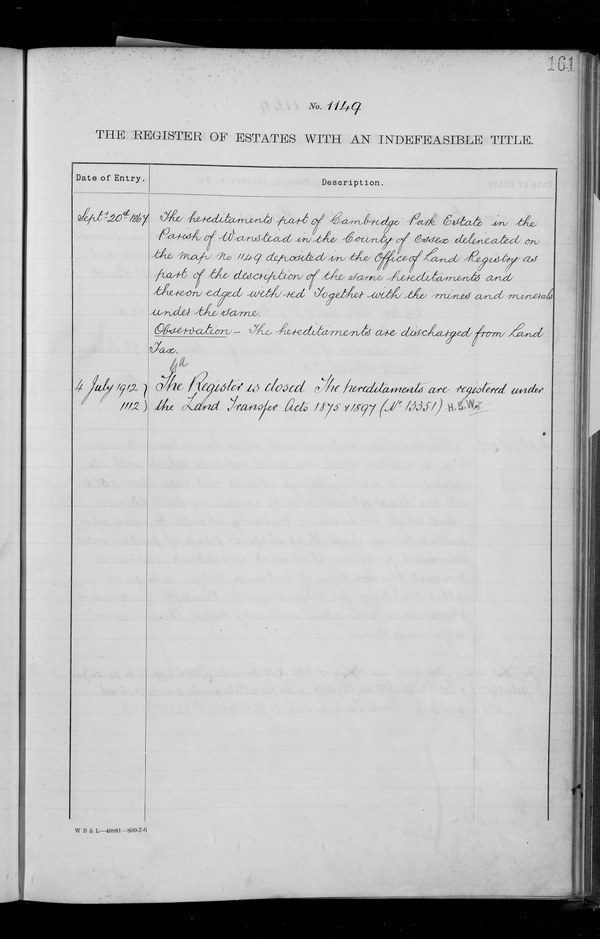 101
No. 1149
THE REGISTER OF ESTATES WITH AN INDEFEASIBLE TITLE.
Date of Entry.
Description.
Septr. 20th 1867
The hereditaments part of Cambridge Park Estate in the
Parish of Wanstead in the County of Essex delineated on
the map No 1149 deposited in the Office of Land Registry as
part of the description of the same hereditaments and
thereon edged with red Together with the mines and minerals
under the same.
Observation – The hereditaments are discharged from Land
Tax.
4 July 1912
1112
The Register is closed The hereditaments are registered under
the Land Transfer Acts 1875 & 1897 (No 13351) H.S.W.
W B & L—48881—800-7-6